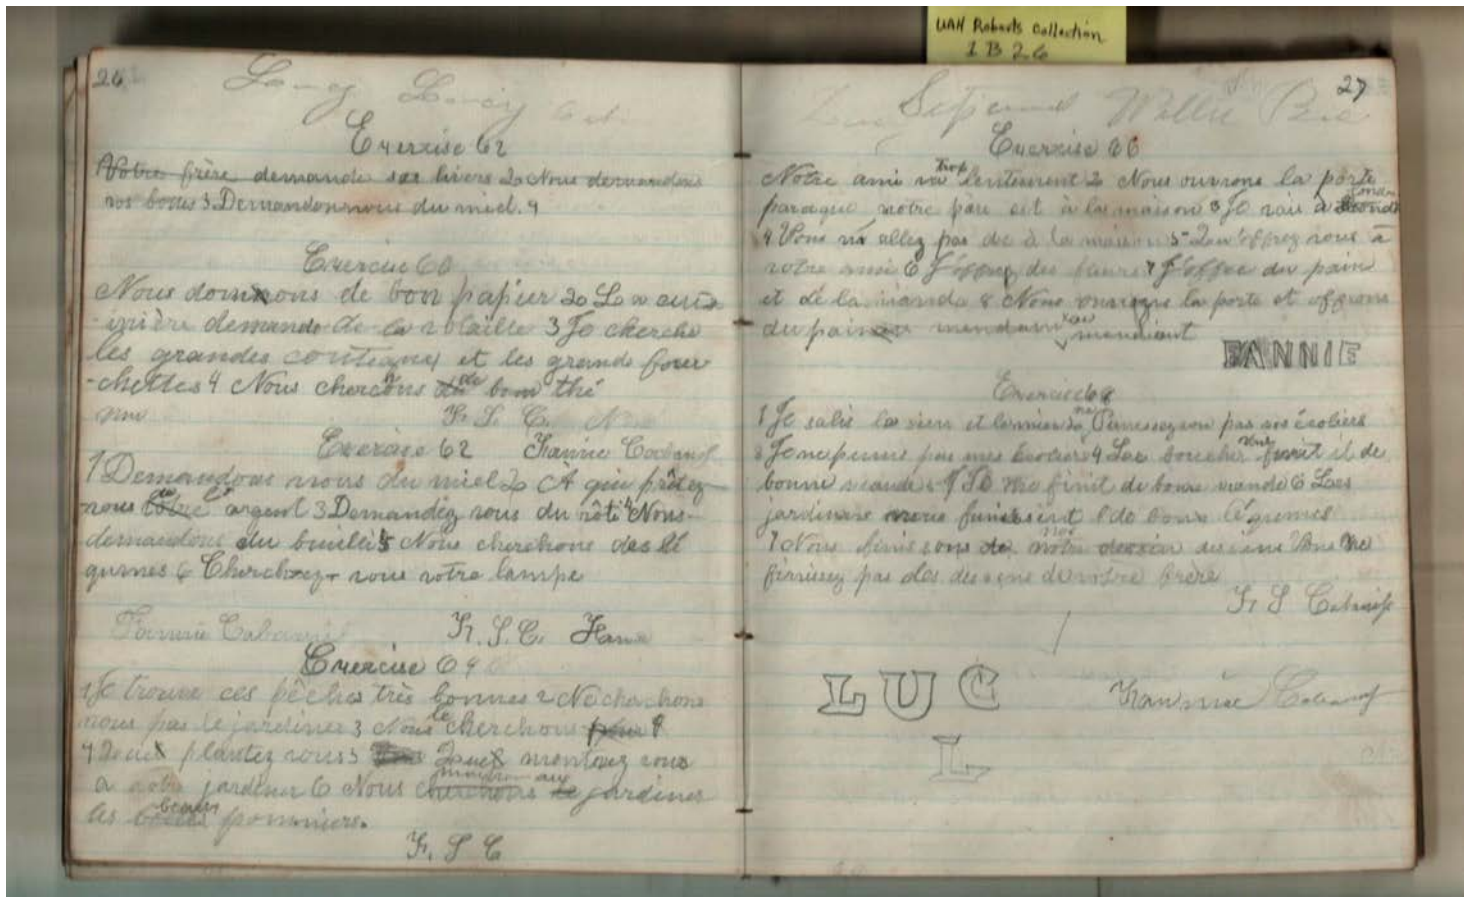 UAH Roberts Collection
1 B 26
26
Exercise 62
Votre frère demande ses livres 2o Nous demandons
vos bottes 3 Demandonnous du miel. 4
Exercise 60
Nous donnons de bon papier 2o La cuis
-inière demande de la volaille 3 Je cherche
les grandes couteaux et les grands four
-chettes 4 Nous cherchons du de bon thé
F. S. C.
Exercise 62 Fannie Cabaniss
1 Demandons nous du miel 2o À qui prêtez
-vous de l' argent 3 Demandez vous du rôti 4 Nous
demandons du bouilli 5 Nous cherchons des lé
gumes 6 Cherchez-vous votre lampe
Fannie Cabaniss F. S. C. Fann
Exercise 64
1 Je trouve ces pêches très bonnes 2 Ne cherchons
nous pas le jardinier 3 Nous le cherchons
4 plantez vous 5 montrez vous
à votre jardinier 6 Nous cherchons montrons au jardinier
les beaux pommiers.
F. S. C
27
Willie
Exercise 66
Notre ami va trop lentement 2 Nous ouvrons la porte
parceque notre père est à la maison 3 Je vais à
4 Vous n' allez pas à la maison 5 Qu'offrez vous à
votre amie 6 J'offre du beurre 7 J'offre du pain
et de la viande 8 Nous ouvrons la porte et offrons
du pain au mendiant
FANNIE
Exercise 68
1 Je salis le sien et le mien 2o ne Punissez vous pas vos écoliers
3 Je ne punis pas mes écoliers 4 Le boucher vous finit il de
bonne viande 5 Il me finit de bonne viande 6 Les
jardiniers nous finissent de bons légumes
7 Nous finissons nos dessins Vous ne
finissez pas les dessins de votre frère
F. S Cabaniss
LUC
Fannie Cabaniss
L